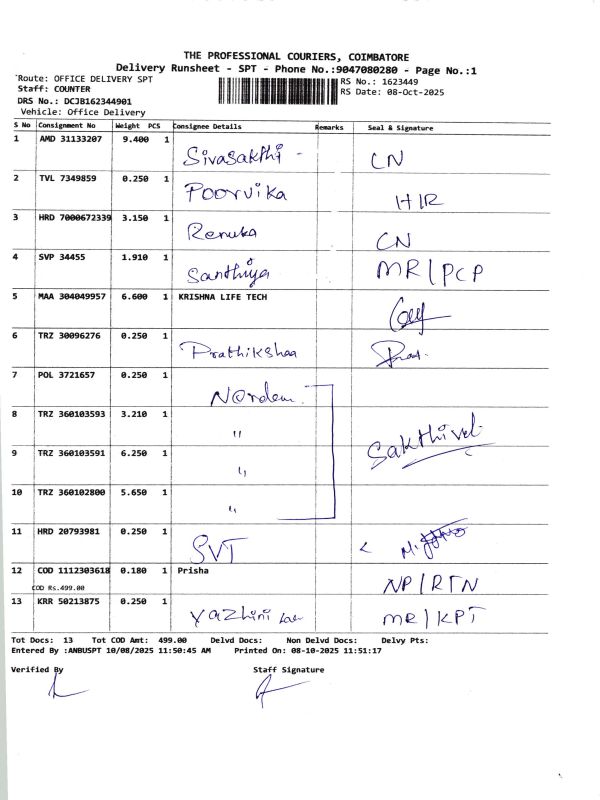 THE PROFESSIONAL COURIERS, COIMBATORE
Delivery Runsheet - SPT - Phone No.:9047080280 - Page No.:1
Route: OFFICE DELIVERY SPT
RS No.: 1623449
Staff: COUNTER
RS Date: 08-Oct-2025
DRS No.: DCJB162344901
Vehicle: Office Delivery
S No Consignment No Weight PCS Consignee Details Remarks Seal & Signature
1 AMD 31133207 9.400 1 Sivasakthi - CN
2 TVL 7349859 0.250 1 Poorvika HIR
3 HRD 7000672339 3.150 1 Renuka CN
4 SVP 34455 1.910 1 Santhiya MR/PCP
5 MAA 304049957 6.600 1 KRISHNA LIFE TECH
6 TRZ 30096276 0.250 1 Prathikshaa
7 POL 3721657 0.250 1
8 TRZ 360103593 3.210 1 " Sakthivel
9 TRZ 360103591 6.250 1 "
10 TRZ 360102800 5.650 1 "
11 HRD 20793981 0.250 1 SVT
12 COD 1112303618 0.180 1 Prisha NP/RTN
COD Rs.499.00
13 KRR 50213875 0.250 1 Yazhini MR/KPT
Tot Docs: 13 Tot COD Amt: 499.00 Delvd Docs: Non Delvd Docs: Delvy Pts:
Entered By :ANBUSPT 10/08/2025 11:50:45 AM Printed On: 08-10-2025 11:51:17
Verified By Staff Signature